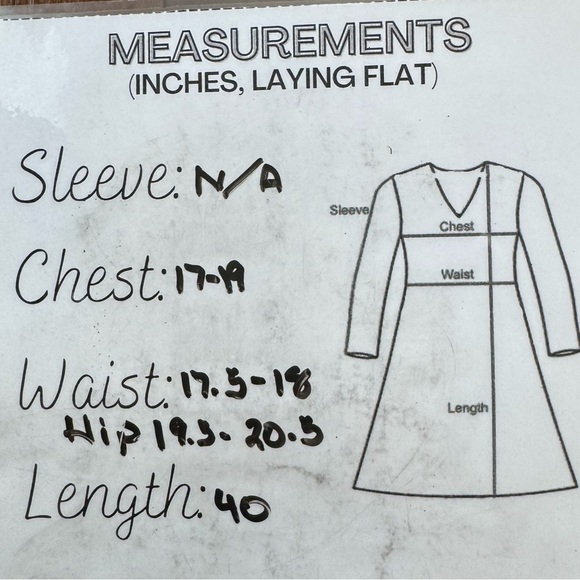 MEASUREMENTS
(INCHES, LAYING FLAT)
Sleeve: N/A
Chest: 17-19
Waist: 17.5-18
Hip 19.5-20.5
Length: 40
Sleeve
Chest
Waist
Length